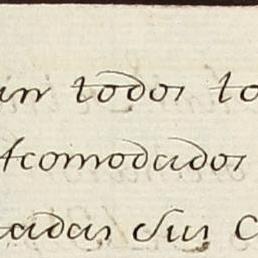 un todos to
Acomodados
tadas sus C